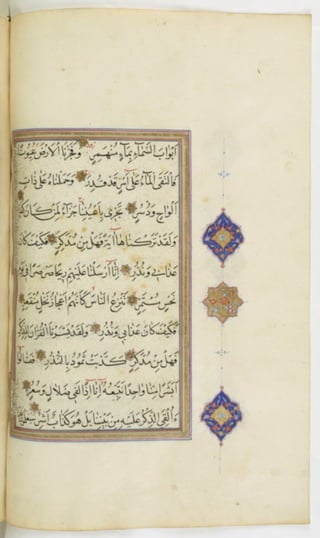 اَبْوَابَ السَّمَاءِ بِمَاءٍ مُنْهَمِرٍ وَفَجَّرْنَا الْاَرْضَ عُيُونًا
فَالْتَقَى الْمَاءُ عَلٰى اَمْرٍ قَدْ قُدِرَ وَحَمَلْنَاهُ عَلٰى ذَاتِ
اَلْوَاحٍ وَدُسُرٍ تَجْرِي بِاَعْيُنِنَا جَزَاءً لِمَنْ كَانَ كُفِرَ
وَلَقَدْ تَرَكْنَاهَا اٰيَةً فَهَلْ مِنْ مُدَّكِرٍ فَكَيْفَ كَانَ
عَذَابِي وَنُذُرِ اِنَّا اَرْسَلْنَا عَلَيْهِمْ رِيحًا صَرْصَرًا فِي يَوْمِ
نَحْسٍ مُسْتَمِرٍّ تَنْزِعُ النَّاسَ كَاَنَّهُمْ اَعْجَازُ نَخْلٍ مُنْقَعِرٍ
فَكَيْفَ كَانَ عَذَابِي وَنُذُرِ وَلَقَدْ يَسَّرْنَا الْقُرْاٰنَ لِلذِّكْرِ
فَهَلْ مِنْ مُدَّكِرٍ كَذَّبَتْ ثَمُودُ بِالنُّذُرِ فَقَالُوا
اَبَشَرًا مِنَّا وَاحِدًا نَتَّبِعُهُ اِنَّا اِذًا لَفِي ضَلَالٍ وَسُعُرٍ
ءَاُلْقِيَ الذِّكْرُ عَلَيْهِ مِنْ بَيْنِنَا بَلْ هُوَ كَذَّابٌ اَشِرٌ سَيَعْلَمُونَ